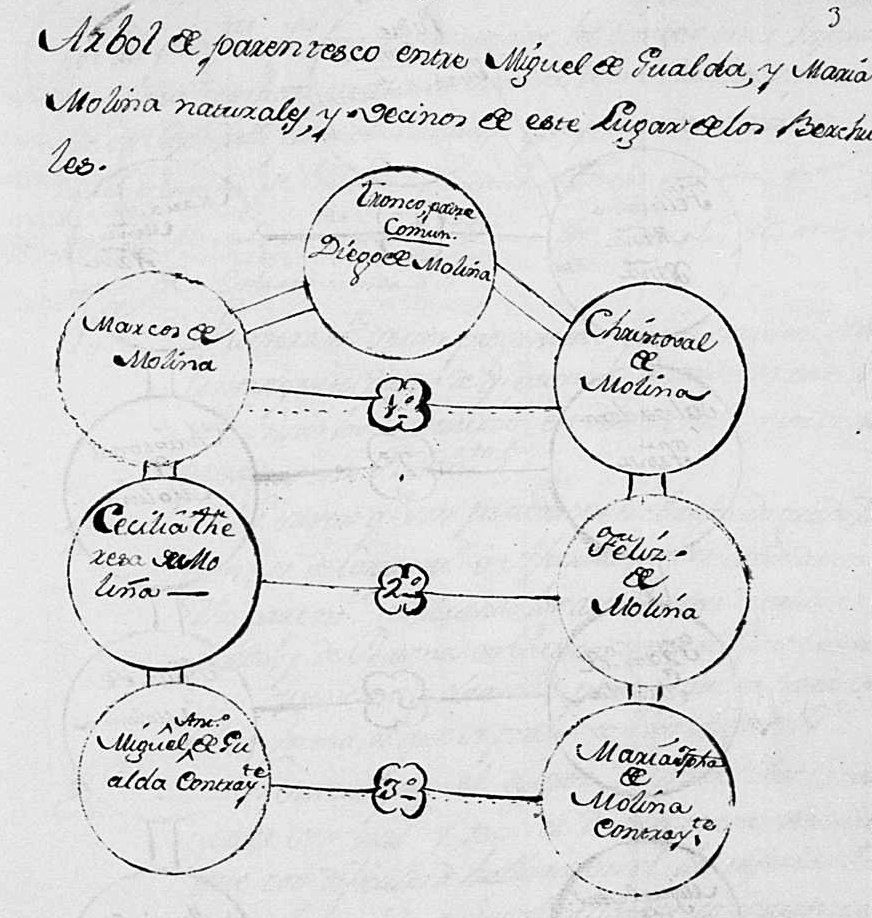 3
Arbol de parentesco entre Miguel de Gualda, y María
Molina naturales, y Vecinos de este Lugar de los Berchu
les.
Tronco, padre
Comun.
Diego de Molina
Marcos de
Molina
Christoval
de
Molina
1º
Cecilia The
resa de Mo
lina
Feliz
de
Molina
2º
Miguel Antº de Gu
alda Contrayte
María Jpha
de
Molina
Contrayte
3º